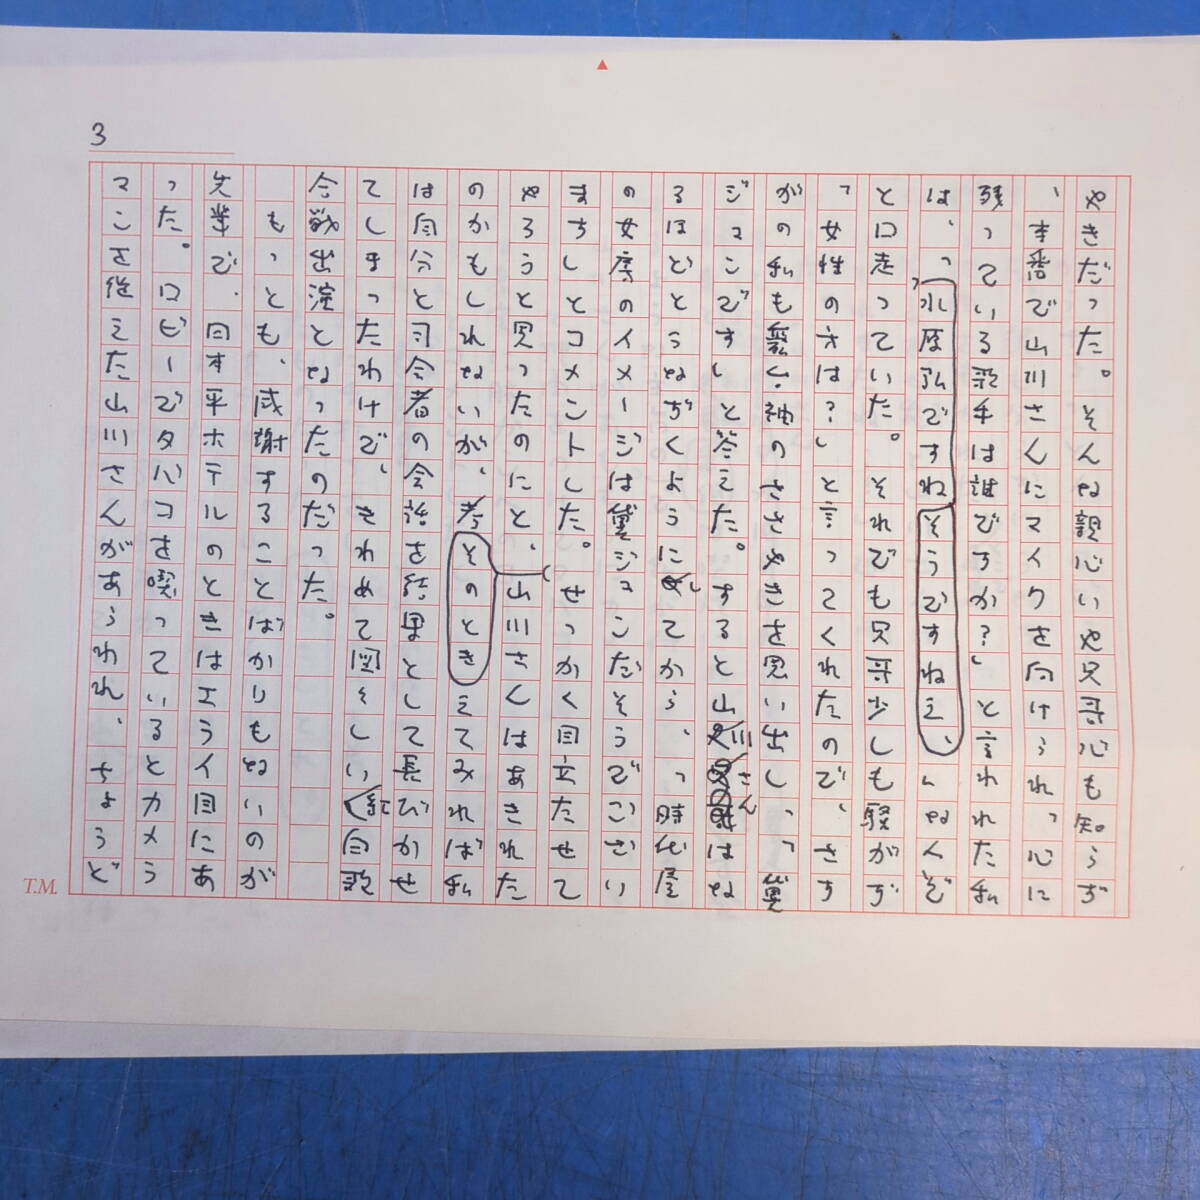 やきだった。そんな親心いや兄哥心も知らず
、本番で山川さんにマイクを向けられ「心に
残っている歌手は誰ですか?」と言われた私
は、「水原弘ですねそうですねえ、」なんぞ
と口走っていた。それでも兄哥少しも騒がず
「女性の方は?」と言ってくれたので、さす
がの私も 神のささやきを思い出し、「黛
ジュンです」と答えた。すると山川さんはな
るほどとうなずくようにしてから、「時代屋
の女房のイメージは黛ジュンだそうでござい
ます」とコメントした。せっかく目立たせて
やろうと思ったのにと、山川さんはあきれた
のかもしれないが、考そのときえてみれば私
は自分と司会者の会話を結果として長びかせ
てしまったわけで、きわめて図々しい紅白歌
合戦出演となったのだった。
もっとも、感謝することばかりもないのが
先輩で、日本平ホテルのときはエライ目にあ
った。ロビーでタバコを喫っているとカメラ
マンを従えた山川さんがあらわれ、ちょうど
3
T.M.